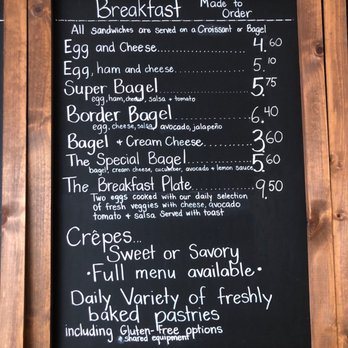 Breakfast Made to Order
All Sandwiches are served on a Croissant or Bagel
Egg and Cheese 4.60
Egg, ham and cheese 5.10
Super Bagel 5.75
egg, ham, cheese, salsa + tomato
Border Bagel 6.40
egg, cheese, salsa, avocado, jalapeño
Bagel + Cream Cheese 3.60
The Special Bagel 5.60
bagel, cream cheese, cucumber, avocado + lemon sauce
The Breakfast Plate 9.50
Two eggs cooked with our daily selection
of fresh veggies with cheese, avocado
tomato + salsa Served with toast
Crêpes...
Sweet or Savory
• Full menu available •
Daily Variety of freshly
baked pastries
including Gluten-Free options
* shared equipment